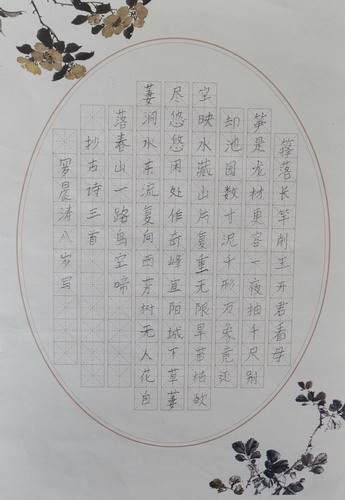 箨落长竿削玉开君看母
笋是龙材更容一夜抽千尺别
却池园数寸泥千形万象竟还
空映水藏山片复重无限旱苗枯欲
尽悠悠闲处作奇峰宜阳城下草萋
萋涧水东流复向西芳树无人花自
落春山一路鸟空啼
抄古诗三首
罗晨涛八岁写